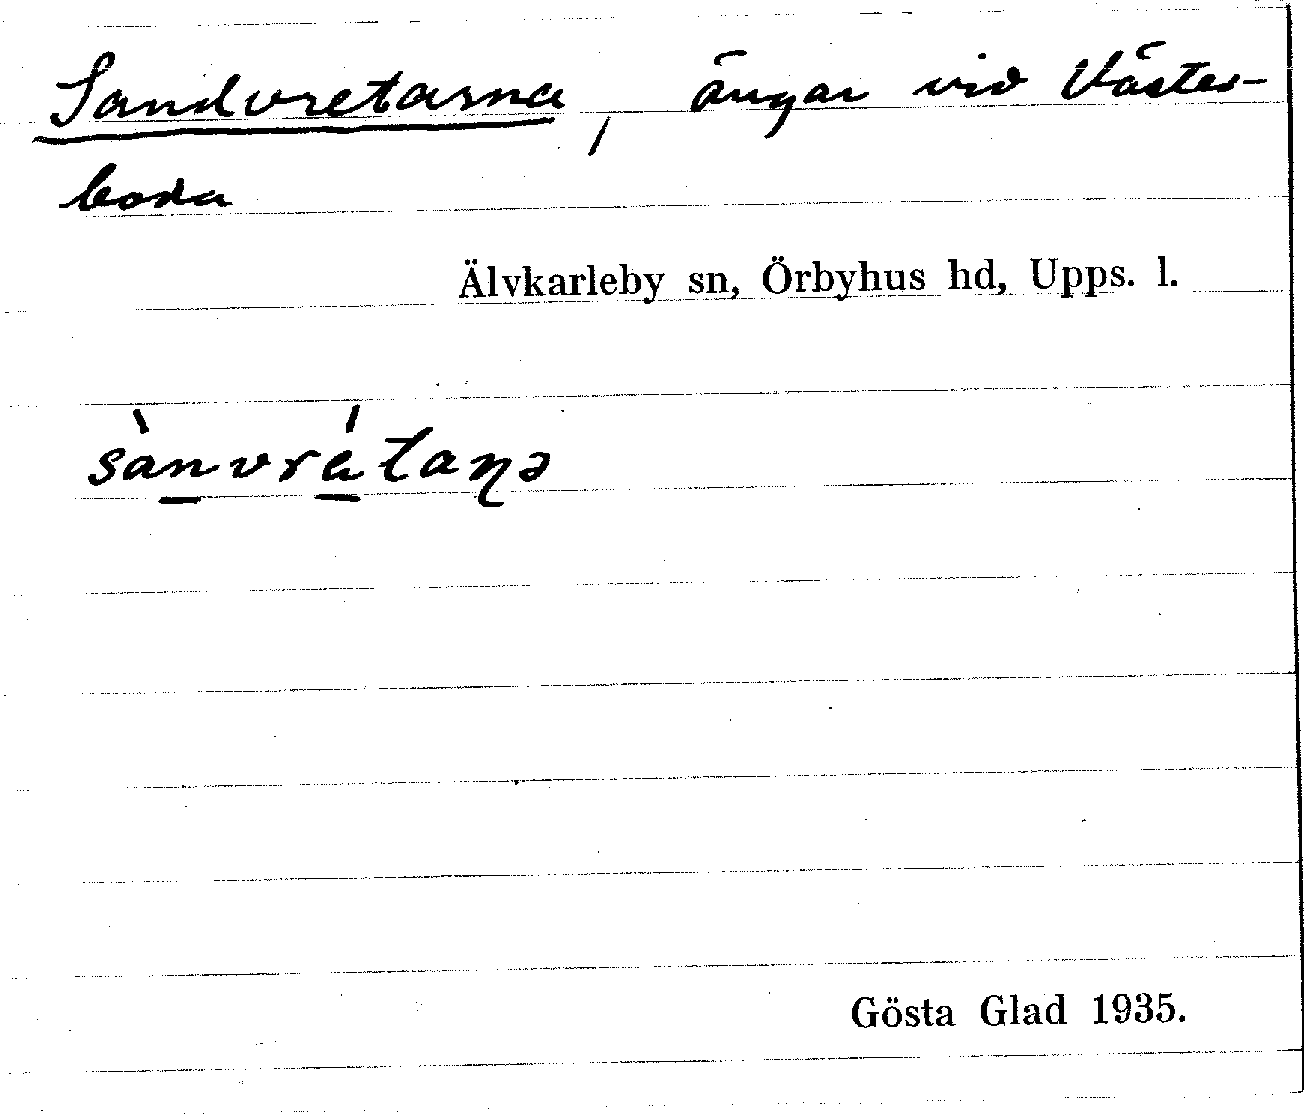 Sandvretarna, ängar vid Väster-
boda
Älvkarleby sn, Örbyhus hd, Upps. l.
sànvrátaɳə
Gösta Glad 1935.